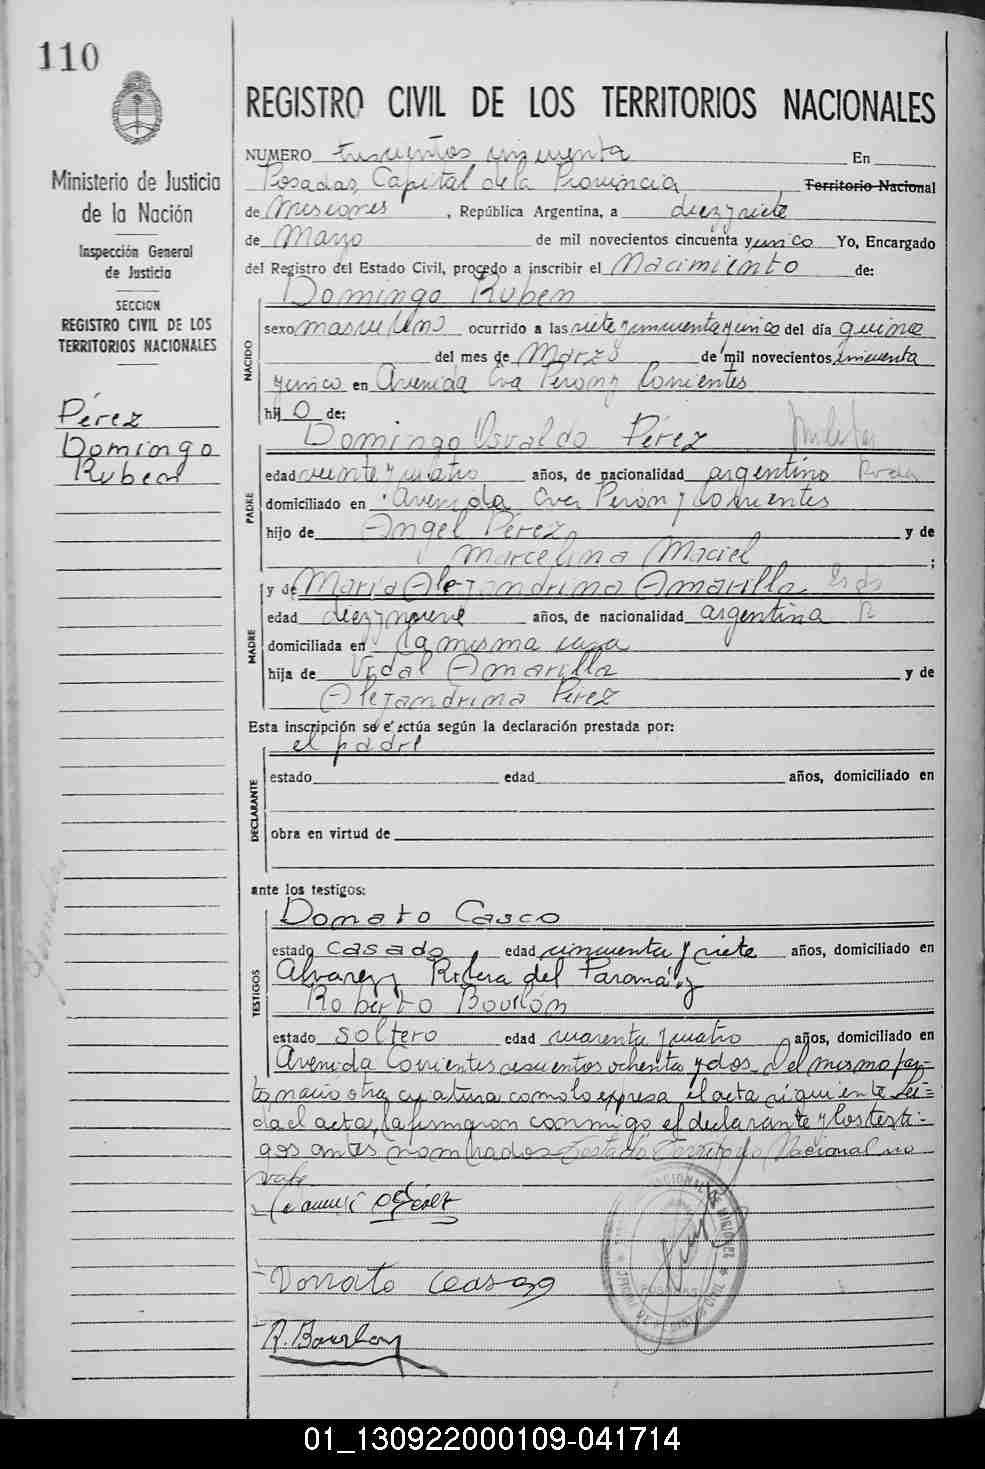 110
Ministerio de Justicia
de la Nación
Inspección General
de Justicia
SECCION
REGISTRO CIVIL DE LOS
TERRITORIOS NACIONALES
Pérez
Domingo
Ruben
REGISTRO CIVIL DE LOS TERRITORIOS NACIONALES
NUMERO trescientos cincuenta En
Posadas, Capital de la Provincia Territorio Nacional
de Misiones, República Argentina, a diez y siete
de Marzo de mil novecientos cincuenta y unico Yo, Encargado
del Registro del Estado Civil, procedo a inscribir el Nacimiento de:
Domingo Ruben
NACIDO
sexo masculino ocurrido a las siete y cincuenta y cinco del día quince
del mes de Marzo de mil novecientos cincuenta
y cinco en Avenida Eva Perón y Corrientes
hij o de:
Domingo Osvaldo Pérez
PADRE
edad veinte y cuatro años, de nacionalidad argentino
domiciliado en Avenida Eva Perón y Corrientes
hijo de Angel Pérez y de
Marcelina Maciel ;
y de María Alejandrina Amarilla
MADRE
edad diez y nueve años, de nacionalidad argentina
domiciliada en la misma casa
hija de Vidal Amarilla y de
Alejandrina Pérez
Esta inscripción se efectúa según la declaración prestada por:
el padre
DECLARANTE
estado edad años, domiciliado en
obra en virtud de
ante los testigos:
Donato Casco
TESTIGOS
estado casado, edad cincuenta y siete años, domiciliado en
Alvarez y Ribera del Paraná y
Roberto Bourlón
estado soltero edad cuarenta y cuatro años, domiciliado en
Avenida Corrientes doscientos ochenta y dos. Del mismo par-
to nació otra criatura como lo expresa el acta siguiente. Leí-
da el acta, la firmaron conmigo el declarante y los testi-
gos antes nombrados. Testado Territorio Nacional no
vale
Donato Casco
R. Bourlon
01_130922000109-041714